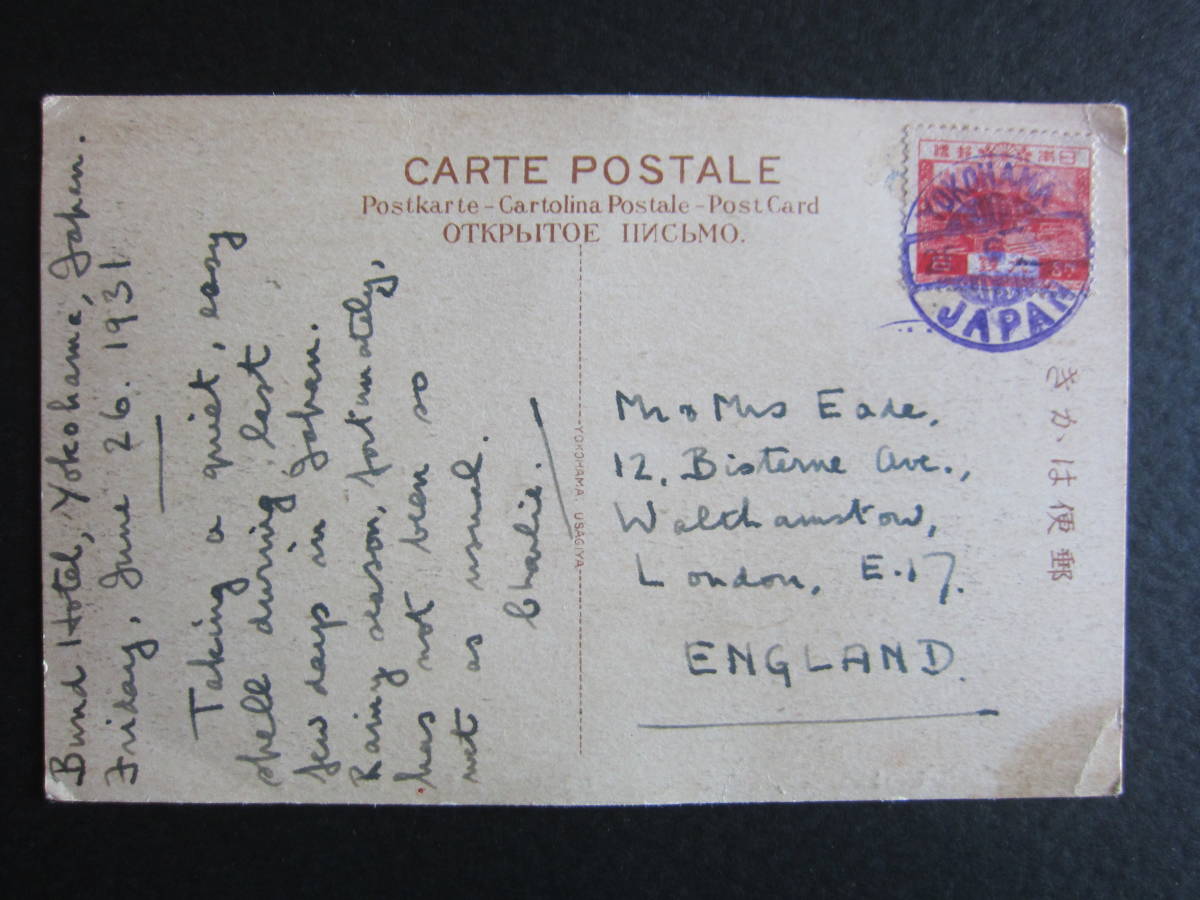 CARTE POSTALE
Postkarte - Cartolina Postale - Post Card
ОТКРЫТОЕ ПИСЬМО.
Bund Hotel, Yokohama, Japan.
Friday, June 26. 1931
Taking a quiet, easy
spell during last
few days in Japan.
Rainy season, fortunately,
has not been so
wet as usual.
Charlie.
YOKOHAMA USAGIYA
YOKOHAMA
JAPAN
Mr & Mrs Eade,
12, Bisterne Ave.,
Walthamstow,
London, E.17.
ENGLAND.
きかは便郵